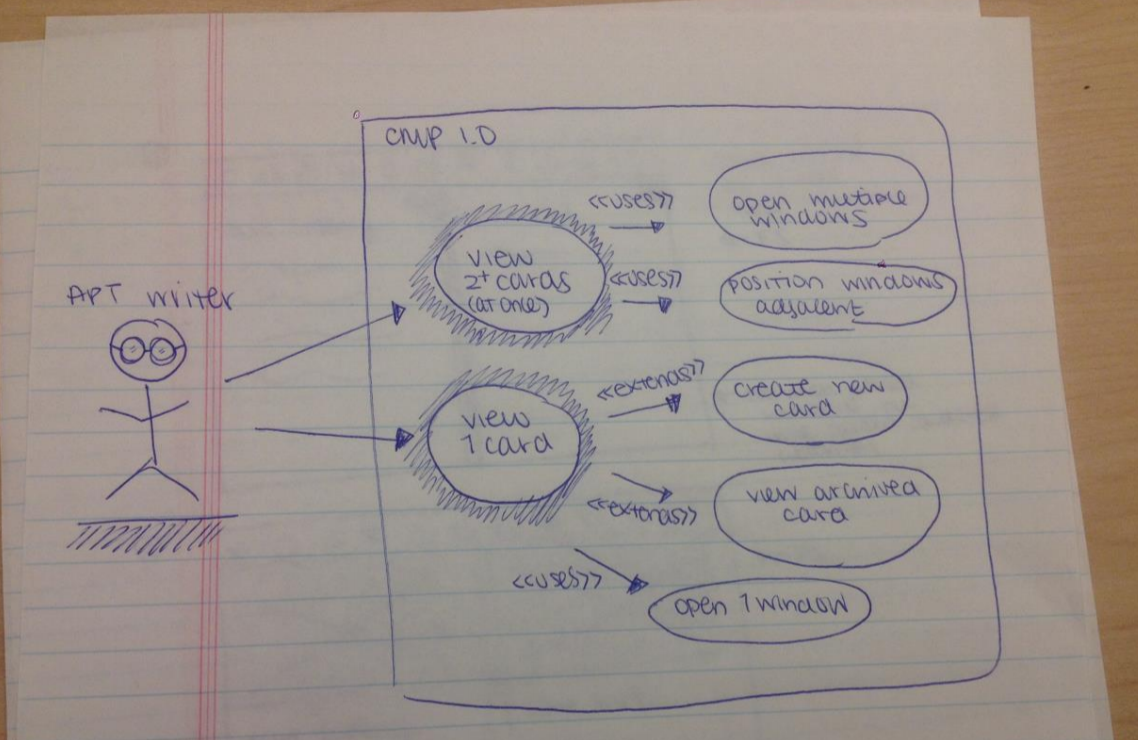 CMP 1.0
APT writer
view
2+ cards
(at once)
<<uses>>
open multiple
windows
<<uses>>
position windows
adjacent
view
1 card
<<extends>>
create new
card
<<extends>>
view archived
card
<<uses>>
open 1 window